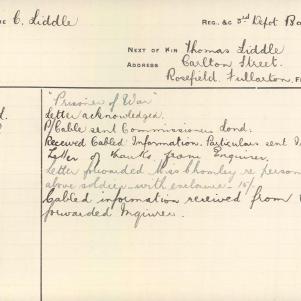 C. Liddle
REG. &C 3rd Depot Ba
NEXT OF KIN Thomas Liddle
ADDRESS Carlton Street.
Rosefield. Fullarton.
"Prisoner of War"
Letter acknowledged.
P/Cable sent Commissioner Lond.
Received Cabled Information. Particulars sent
Letter of thanks from Enquirer.
Letter forwarded Miss Chomley re person
above soldier with enclosure 15/-
Cabled information received from
forwarded Inquirer.